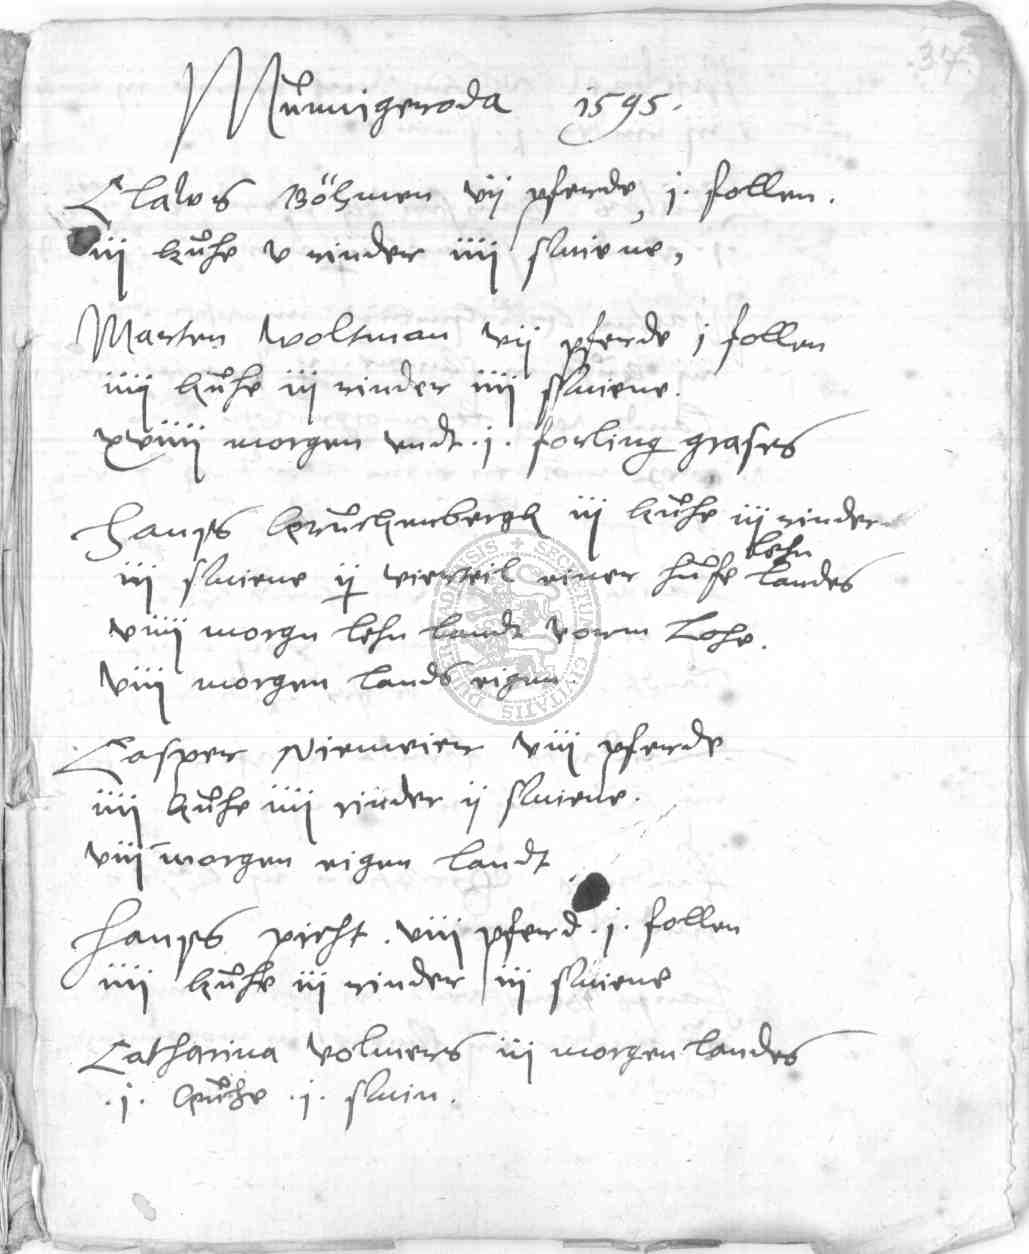 37.
Nünnigeroda 1595.
Clawes Böhmen vij pferde, j. follen.
iij kuͤhe v rinder iiij schwiene,
Marten Woltman vij pferde j follen
iiij kuͤhe iij rinder iiij schwiene.
xviiij morgen vndt .j. forling grases
Hanß iij kuͤhe iij rinder
iij schwiene ij vierteil einer hufe lehn landes
viiij morgn lehn landt vorm Lohe.
viij morgen lands eigen.
Casper Niemeier viij pferde
iiij kuͤhe iiij rinder ij schwiene.
viij morgen eigen landt
Hanß picht . viij pferd .j. follen
iiij kuͤhe iij rinder iij schwiene
Catharina Volmers iij morgen landes
.j. kuͤhe .j. schwin.
SECRETUM CIVITATIS DUDERSTADENSIS